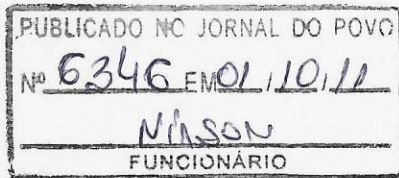 PUBLICADO NO JORNAL DO POVO
Nº 6346 EM 01/10/11
Nilson
FUNCIONÁRIO